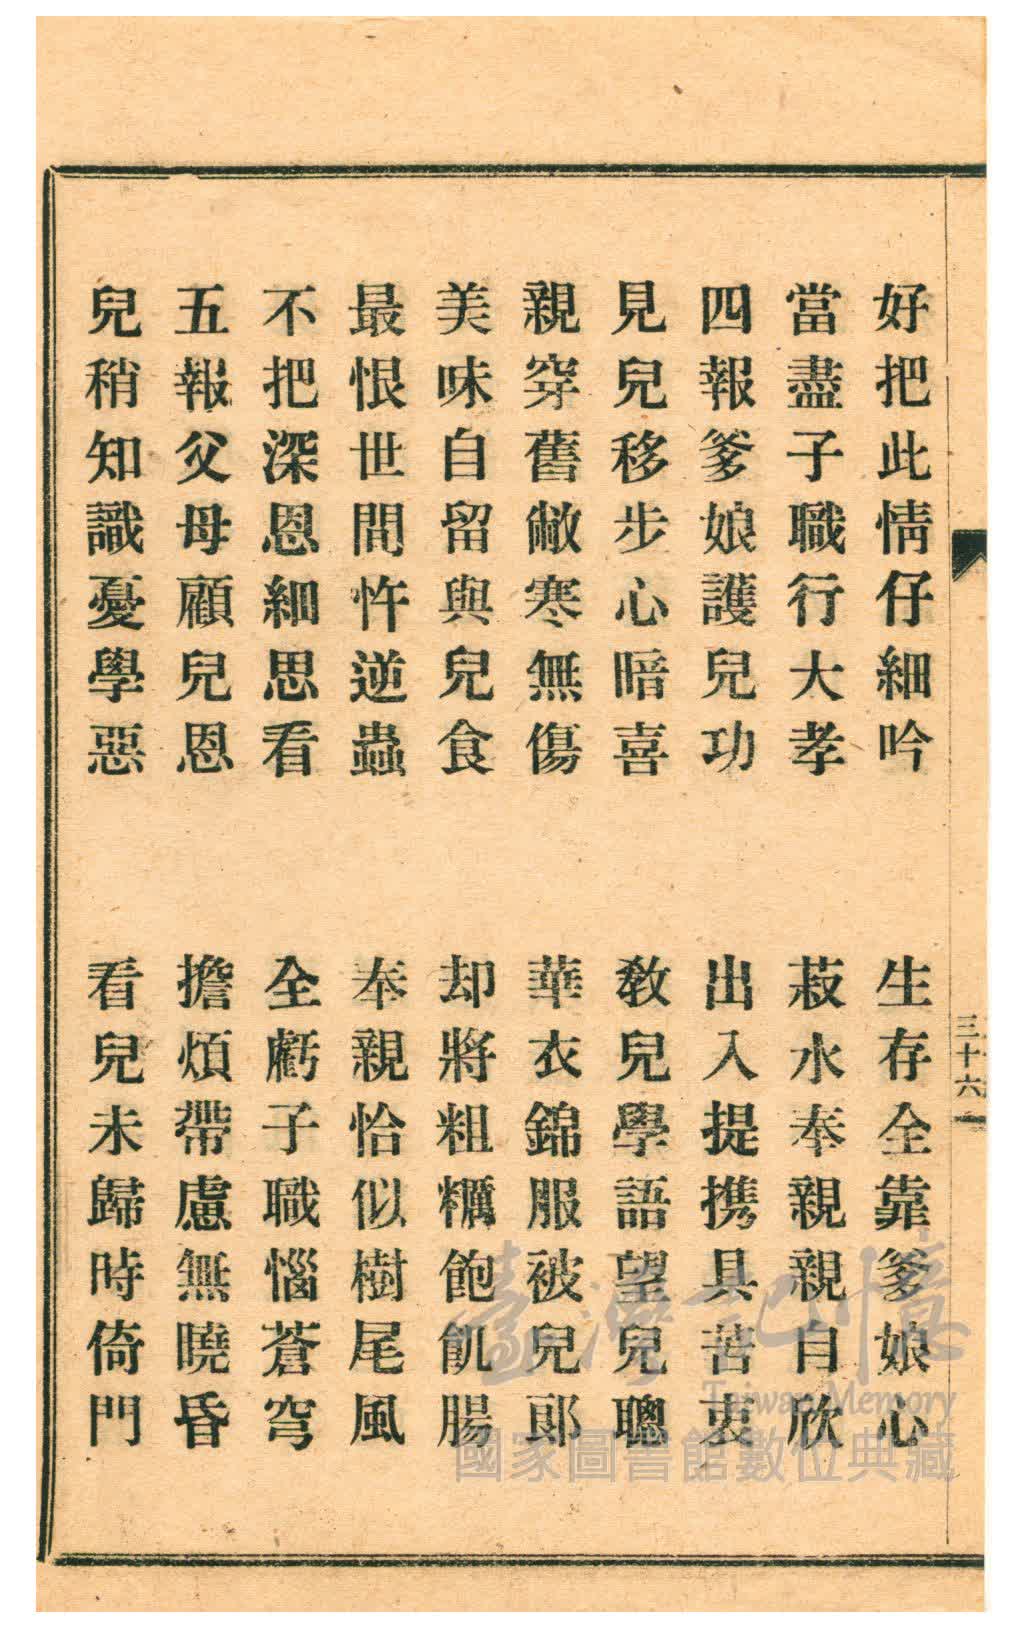 好把此情仔細吟　生存全靠爹娘心
當盡子職行大孝　菽水奉親親自欣
四報爹娘護兒功　出入提携具苦衷
見兒移步心暗喜　教兒學語望兒聰
親穿舊敝寒無傷　華衣錦服被兒郎
美味自留與兒食　却將粗糲飽飢腸
最恨世間忤逆蟲　奉親恰似樹尾風
不把深恩細思看　全虧子職惱蒼穹
五報父母顧兒恩　擔煩帶慮無曉昏
兒稍知識憂學惡　看兒未歸時倚門
三十六
臺灣記憶
Taiwan Memory
國家圖書館數位典藏